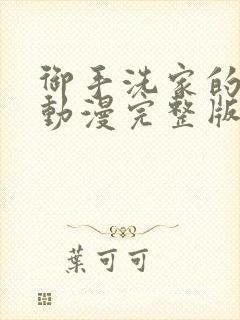 御手洗家的
動漫完整版
葉可可